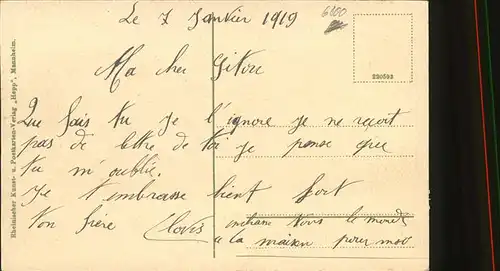 Le 7 Janvier 1919
6800
220593
Ma cher
Que fais tu je l'ignore je ne reçoit
pas de lettre de toi je pense que
tu m'oublie.
Je t'embrasse bient fort
Ton frère Clovis
tous le monde
a la maison pour moi
Rheinischer Kunst- u. Postkarten-Verlag „Hepp", Mannheim.